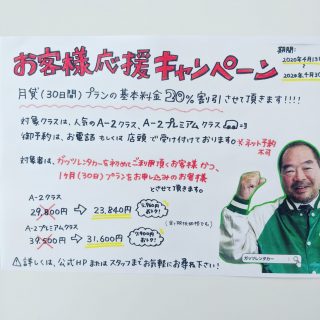 お客様応援キャンペーン
期間:
2020年4月13日
~
2020年4月30日
月貸(30日間)プランの基本料金20%割引させて頂きます!!!!
対象クラスは、人気のA-2クラス、A-2プレミアムクラス
御予約は、お電話もしくは店頭で受け付けております。
※ネット予約
不可
対象者は、ガッツレンタカーを初めてご利用頂くお客様かつ、
1ヶ月(30日)プランをお申し込みのお客様
とさせて頂きます。
A-2クラス
29,800円 → 23,840円
5,960円
おトク!
A-2プレミアムクラス
39,500円 → 31,600円
7,900円
おトク!
⚠詳しくは、公式HPまたはスタッフまでお気軽にお尋ね下さい!
ガッツレンタカー